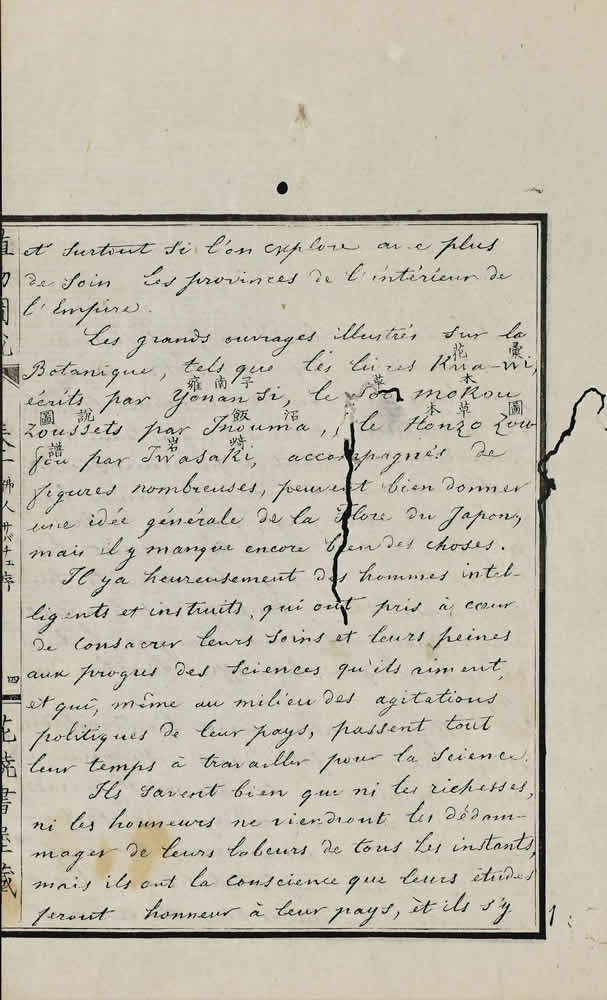 et surtout si l'on explore avec plus
de soin les provinces de l'intérieur de
l'Empire.
Les grands ouvrages illustrés sur la
花 彙
Botanique, tels que les livres Kwa-wi,
雍南子 草木
écrits par Yonan Si, le Soo mokou
圖說 飯沼 本草 圖
Zoussets par Inouma, le Honzo Zou
譜 岩崎
fou par Iwasaki, accompagnés de
figures nombreuses, peuvent bien donner
une idée générale de la Flore du Japon,
mais il y manque encore bien des choses.
Il y a heureusement des hommes intel-
ligents et instruits, qui ont pris à cœur
de consacrer leurs soins et leurs peines
aux progres des Sciences qu'ils aiment,
et qui, même au milieu des agitations
politiques de leur pays, passent tout
leur temps à travailler pour la Science.
Ils savent bien que ni les richesses,
ni les honneurs ne viendront les dédam-
mager de leurs labeurs de tous les instants,
mais ils ont la conscience que leurs études
feront honneur à leur pays, et ils s'y
佛人サバチエ序
四
花繞書屋藏